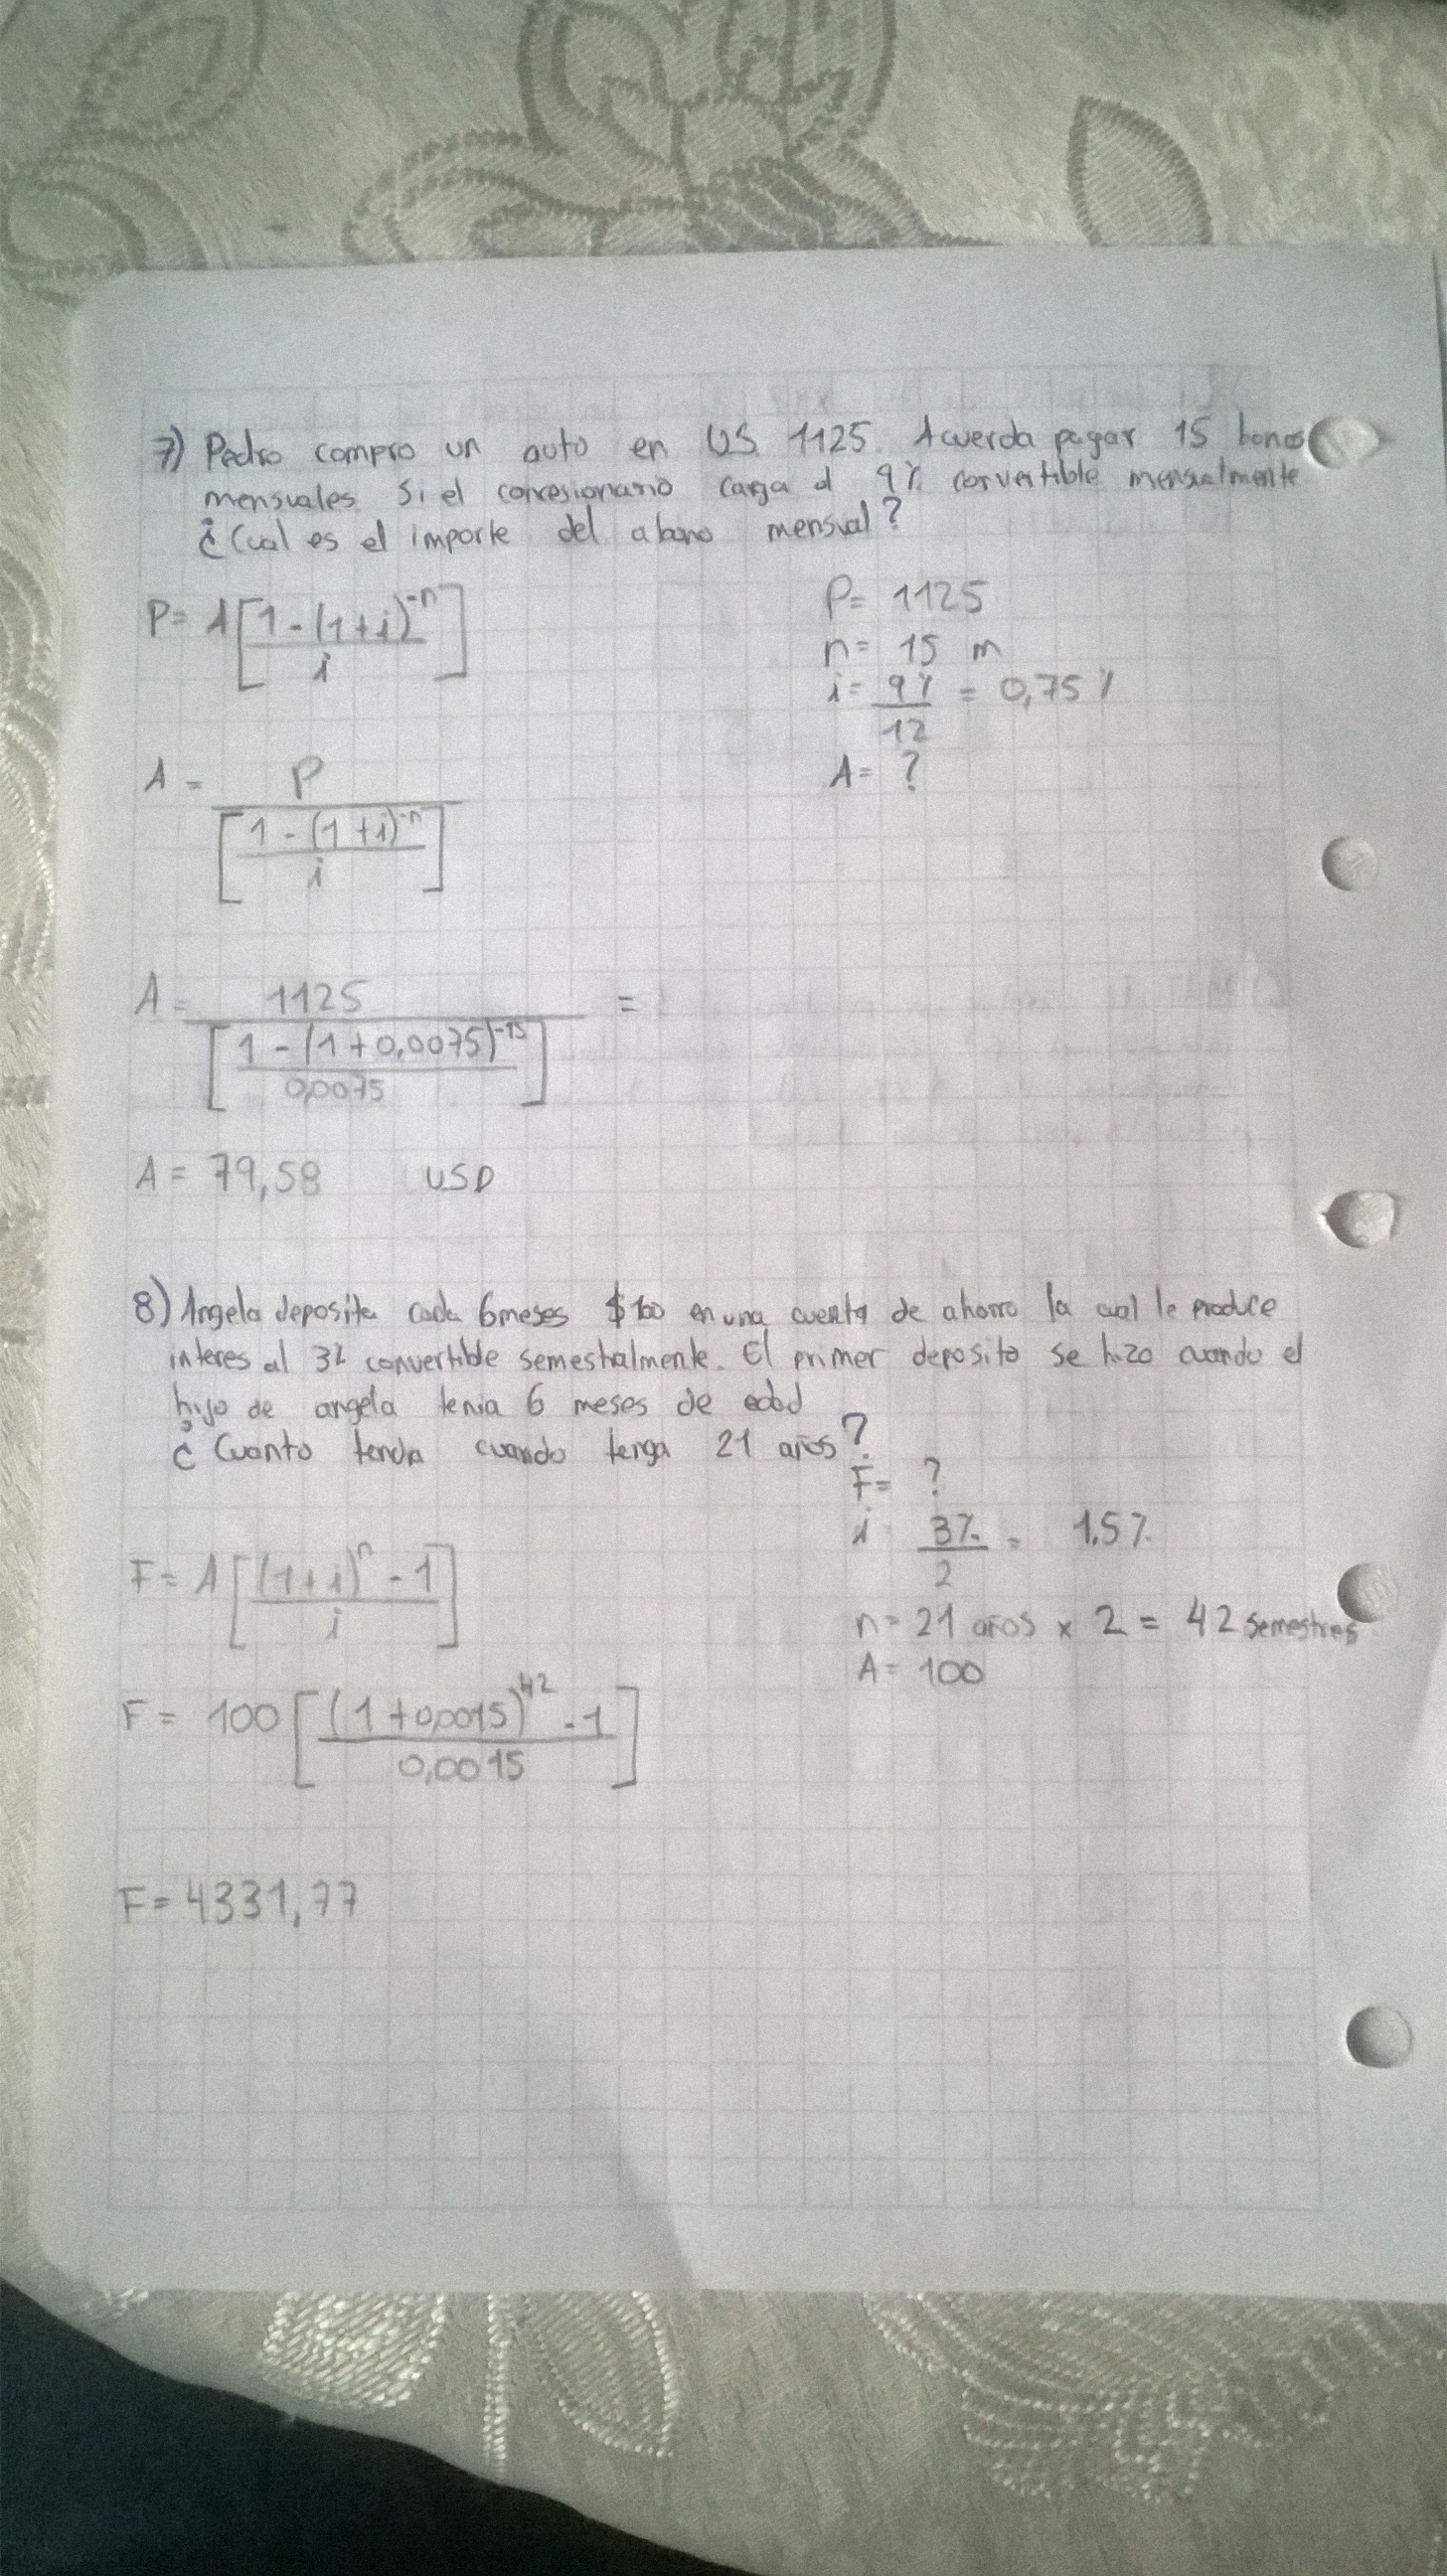 7) Pedro compro un auto en US. 1125. Acuerda pagar 15 bonos
mensuales Si el concesionario carga al 9% convertible mensualmente
¿Cual es el importe del abono mensual?
P= A[1-(1+i)^-n / i]
P= 1125
n= 15 m
i= 9%/12 = 0,75%
A= ?
A = P / [1-(1+i)^-n / i]
A = 1125 / [1-(1+0,0075)^-15 / 0,0075] =
A = 79,58 USD
8) Angela deposita cada 6 meses $100 en una cuenta de ahorro la cual le produce
interes al 3% convertible semestralmente. El primer deposito se hizo cuando el
hijo de angela tenia 6 meses de edad
¿Cuanto tendra cuando tenga 21 años?
F= ?
i 3%/2 = 1.5%
n= 21 años x 2 = 42 semestres
A= 100
F= A[(1+i)^n - 1 / i]
F= 100[(1+0,0015)^42 - 1 / 0,0015]
F= 4331,77